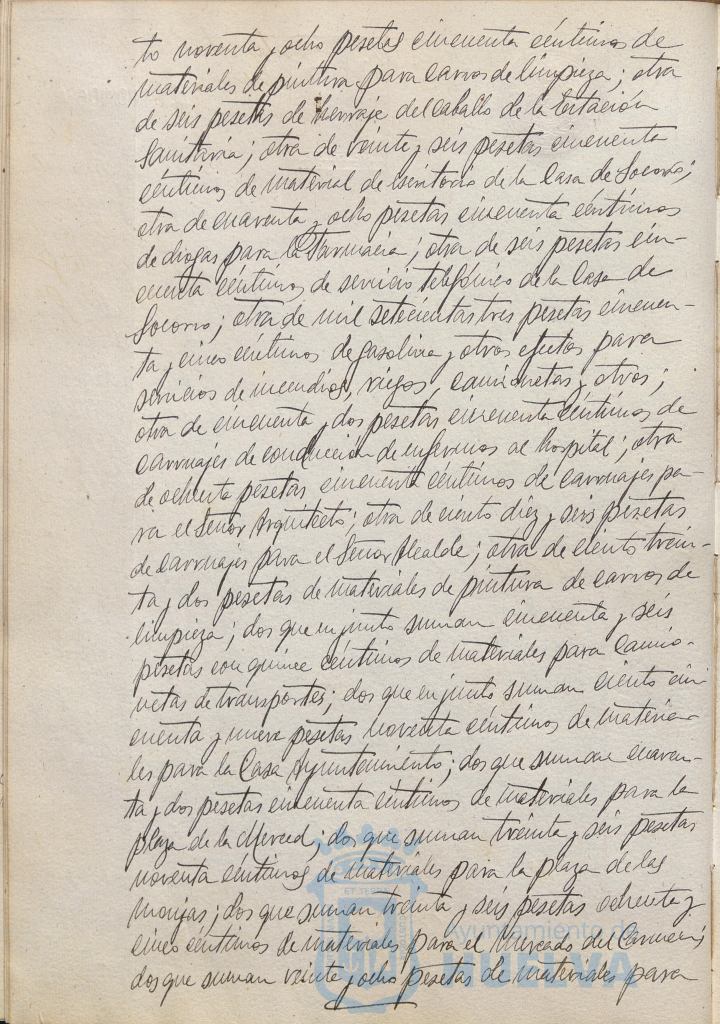 to noventa y ocho pesetas cincuenta céntimos de
materiales de pintura para carros de limpieza; otra
de seis pesetas de herraje del caballo de la Estación
Sanitaria; otra de veinte y seis pesetas cincuenta
céntimos de material de escritorio de la Casa de Socorro;
otra de cuarenta y ocho pesetas cincuenta céntimos
de drogas para la Farmacia; otra de seis pesetas cin-
cuenta céntimos de servicio telefónico de la Casa de
Socorro; otra de mil setecientas tres pesetas cincuen-
ta y cinco céntimos de gasolina y otros efectos para
servicios de incendios, riegos, camionetas y otros;
otra de cincuenta y dos pesetas cincuenta céntimos de
carruajes de conducción de enfermos al hospital; otra
de ochenta pesetas cincuenta céntimos de carruajes pa-
ra el Señor Arquitecto; otra de ciento diez y seis pesetas
de carruajes para el Señor Alcalde; otra de ciento trein-
ta y dos pesetas de materiales de pintura de carros de
limpieza; dos que en junto suman cincuenta y seis
pesetas con quince céntimos de materiales para camio-
netas de transportes; dos que en junto suman ciento cin
cuenta y nueve pesetas noventa céntimos de materia-
les para la Casa Ayuntamiento; dos que suman cuaren-
ta y dos pesetas cincuenta céntimos de materiales para la
plaza de la Merced; dos que suman treinta y seis pesetas
noventa céntimos de materiales para la plaza de las
Monjas; dos que suman treinta y seis pesetas ochenta y
cinco céntimos de materiales para el Mercado del Carmen;
dos que suman veinte y ocho pesetas de materiales para
Ayuntamiento de
HUELVA